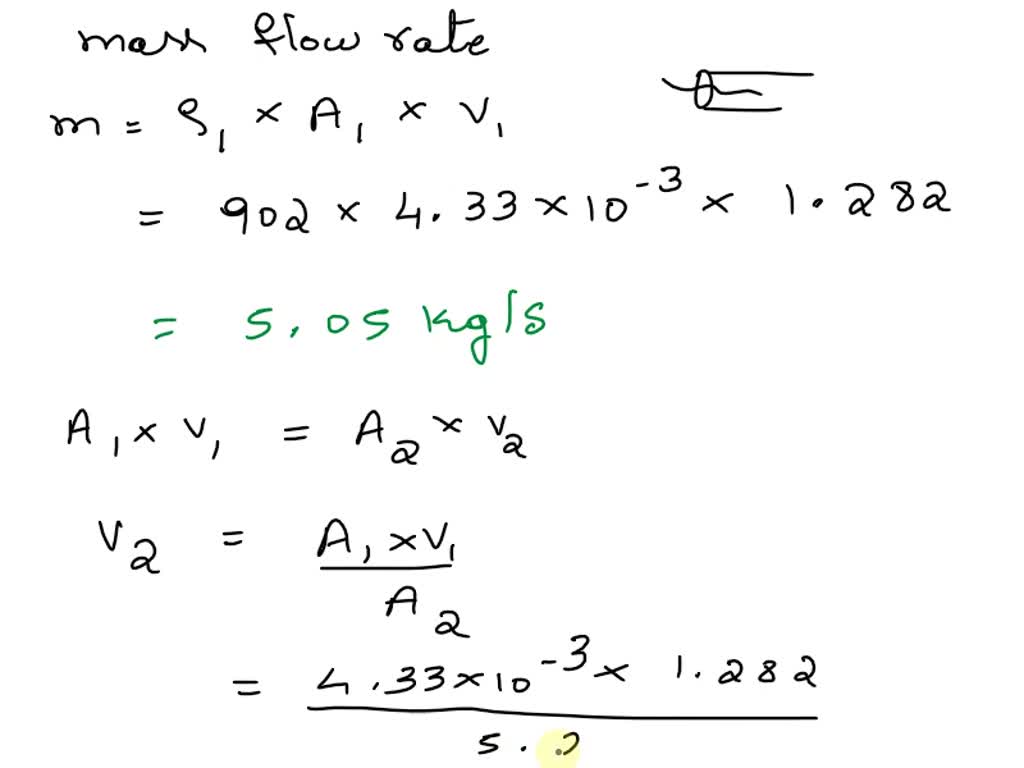 mass flow rate
m = ρ₁ × A₁ × V₁
= 902 × 4.33 × 10⁻³ × 1.282
= 5.05 kg/s
A₁ × V₁ = A₂ × V₂
V₂ = A₁ × V₁
A₂
= 4.33 × 10⁻³ × 1.282
5.